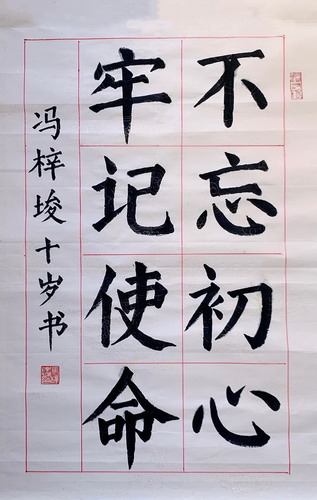 不忘初心
牢记使命
冯梓埈十岁书